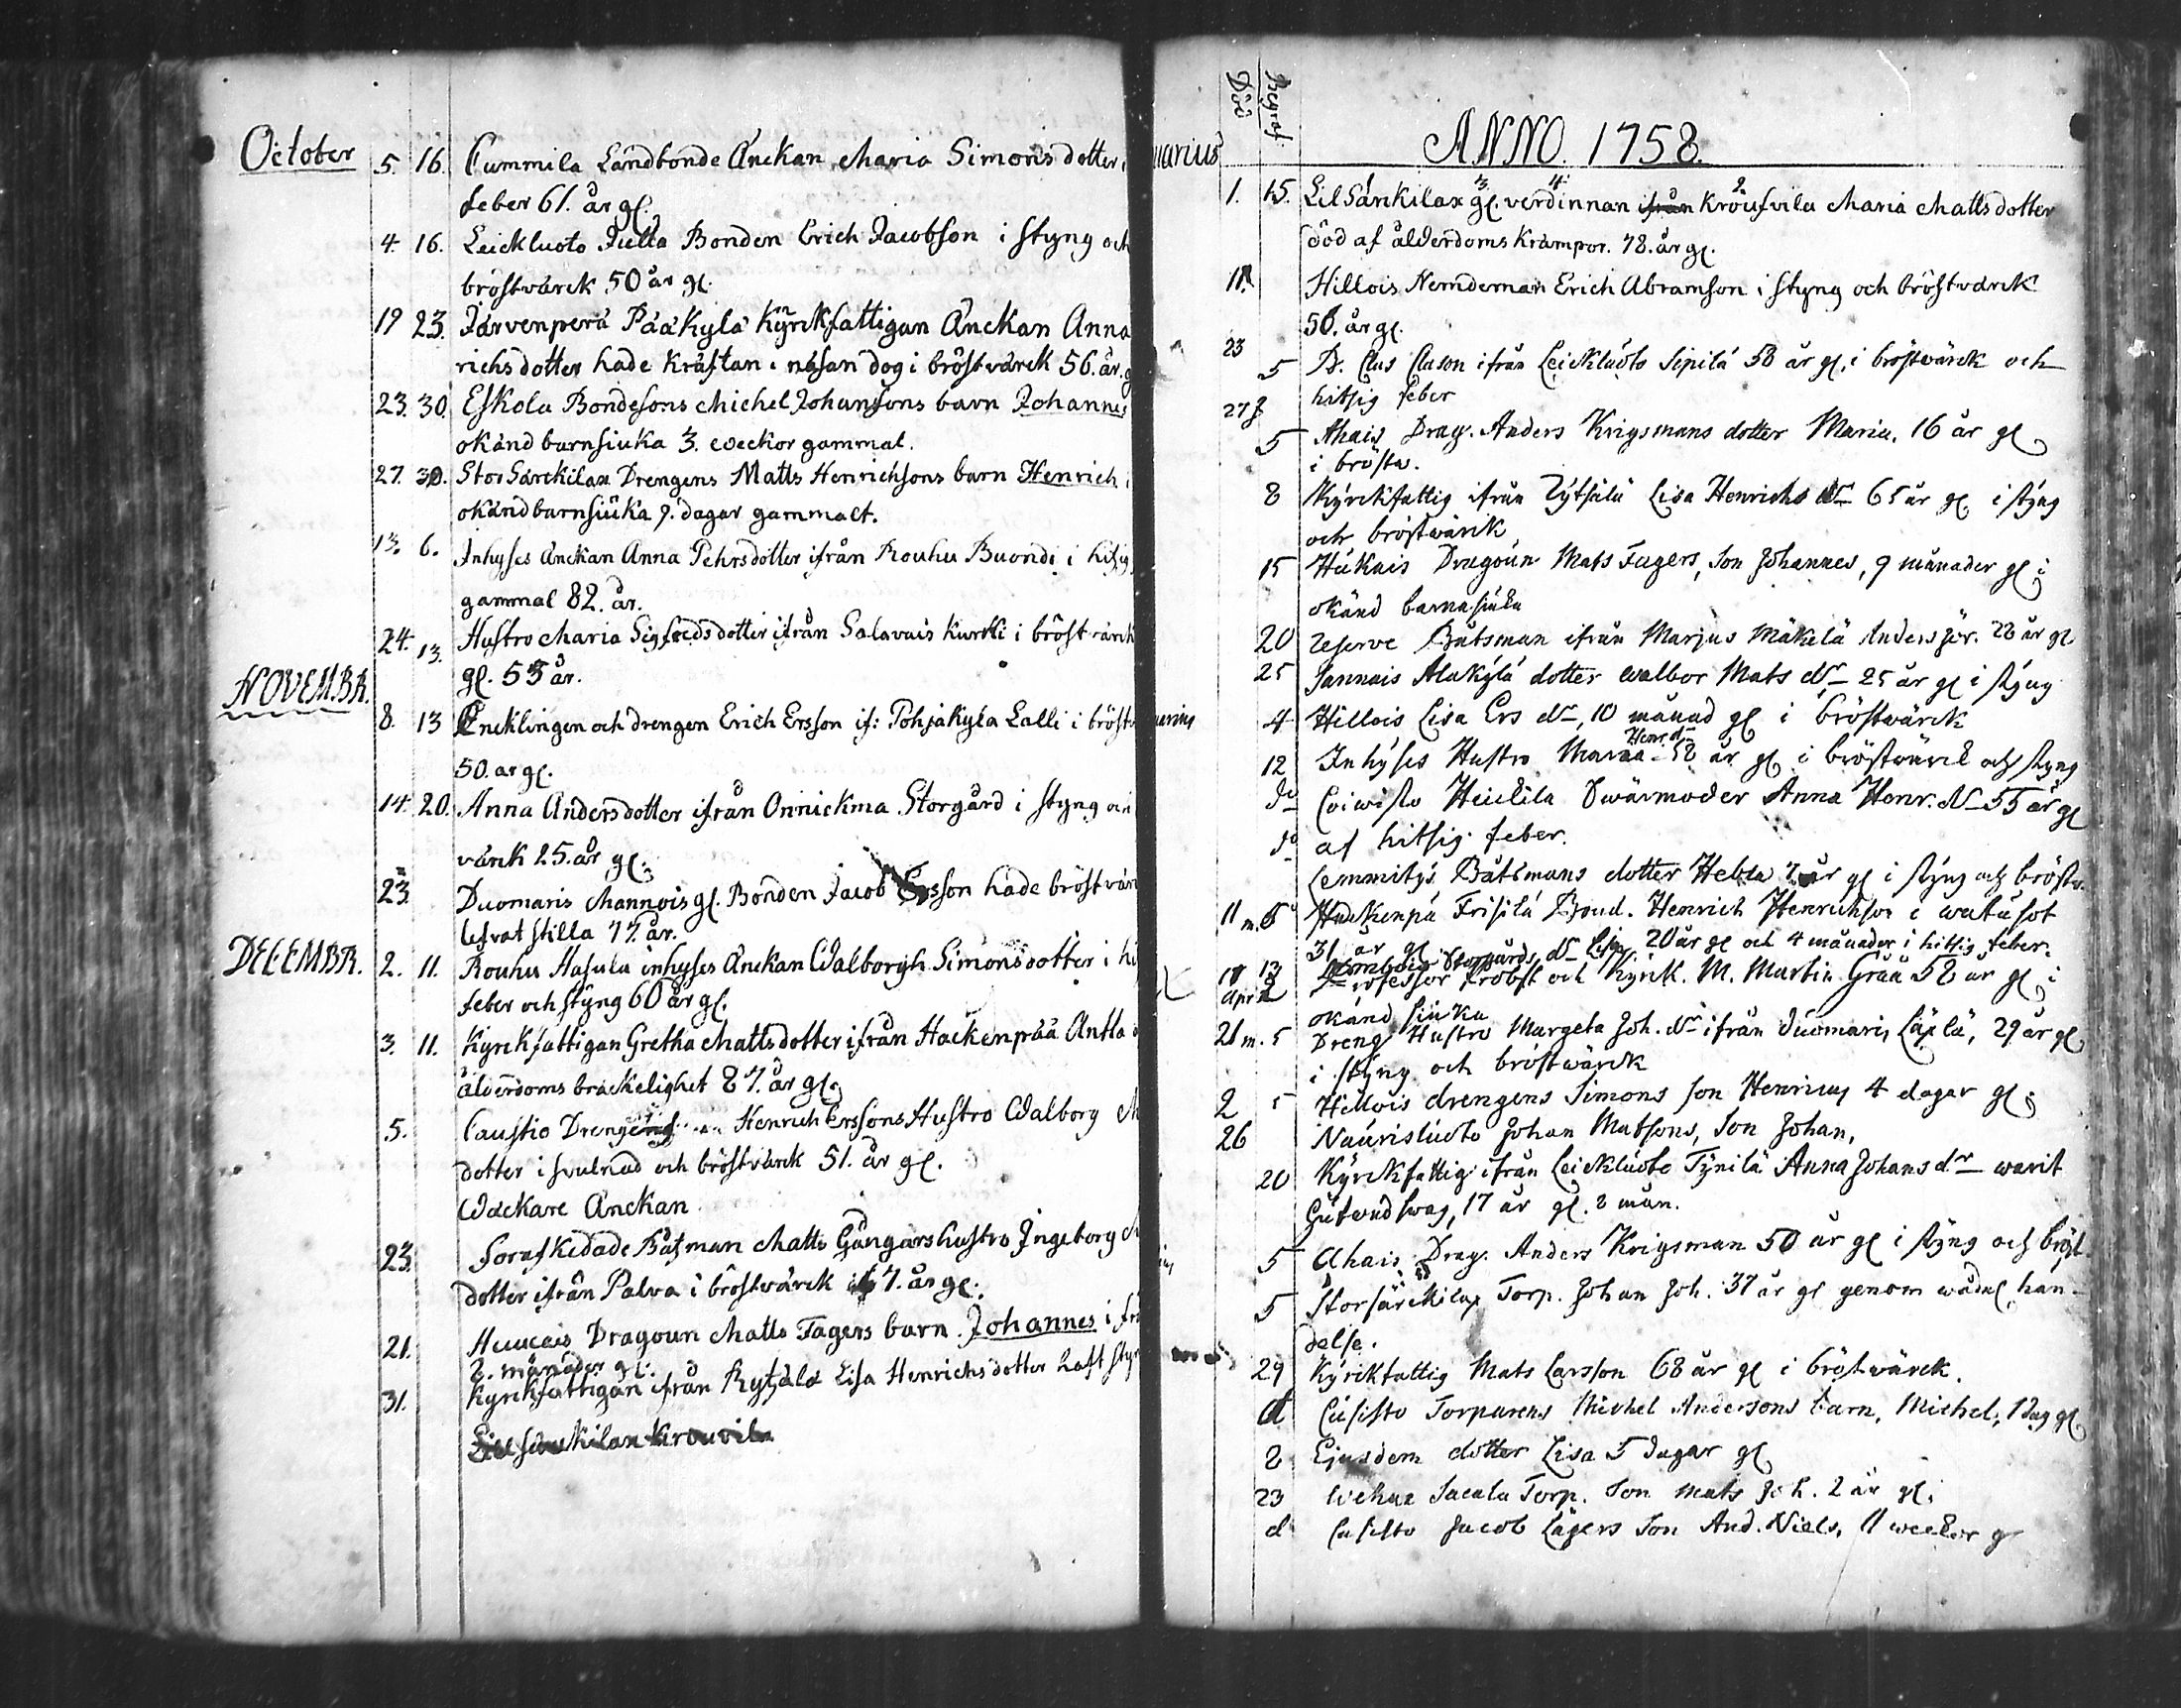 October 5. 16. Cummila Landbonde Änckan Maria Simons dotter
feber 61. år gl.
4. 16. Leickluoto Bonden Erich Jacobson i styng och
bröstvärck 50 år gl.
19 23. Järvenperä Pääkylä Kyrckfattigan Änckan Anna
richsdotter hade kräftan i näsan dog i bröstvärck 56. år.
23. 30. Eskola Bondesons Michel Johansons barn Johannes
okänd barnsiuka 3. weckor gammal.
27. 30. Stor Särckilax Drengens Matts Henrichsons barn Henrich
okänd barnsiuka 9. dagar gammalt.
13. 6. Inhyses änckan Anna Pehrsdotter ifrån Rouhu i hitsig
gammal 82. år.
24. 13. Hustro Maria Sigfredsdotter ifrån Salavais Kurcki i bröstvärck
gl. 53 år.
NOVEMBR.
8. 13 Encklingen och drengen Erich Ersson if: Pohjakylä Lalli i bröst
50. år gl.
14. 20. Anna Andersdotter ifrån Onnickma Storgård i styng och
värck 25. år gl.
23. Duomaris Mannois gl. Bonden Jacob Ersson hade bröstvär
lefvat stilla 77. år.
DECEMBR. 2. 11. Rouhu Hasula inhyses Änckan Walborgh Simonsdotter i hi
feber och styng 60 år gl.
3. 11. Kyrckfattigan Gretha Mattsdotter ifrån Hackenpää Antla
ålderdoms bräckelighet 87. år gl.
5. Caustio Henrich Erssons Hustro Walborg M
dotter i svulnad och bröstvärck 51. år gl.
Wäckare Änckan
23. Forafskedade Båtsman Matts Gångars hustro Ingeborg M
dotter ifrån Palva i bröstvärck 7. år gl.
21. Dragoun Matts Fagers barn Johannes i
2. månader gl.
31. Kyrckfattigan ifrån Lisa Henrichsdotter haft styn
Lill Särckilax Krouvila
Begraf.
Död
uarius
ANNO. 1758.
1. 15. Lil Särckilax gl. verdinnan ifrån Kroufvila Maria Mattsdotter
död af ålderdoms krämpor. 78. år gl.
11. Hillois Nemdeman Erich Abramson i styng och bröstvärck
50. år gl.
23 5 B. Clas Clason ifrån Leickluoto Sipilä 58 år gl. i bröstvärck och
hitsig feber
27 5 Ahais Drag. Anders Krigsmans dotter Maria, 16 år gl
i bröstw.
8 Kyrckfattig ifrån Lisa Henrichs dr 65 år gl. i styng
och bröstwärck
15 Dragoun Mats Fagers, Son Johannes, 9 månader gl i
okänd barnasiuka
20 reserve Båtsman ifrån Marjus Mäkelä 28 år gl
25 Jannais Alakylä dotter walbor Mats dr 25 år gl i styng
uarius 4 Hillois Lisa Ers dr, 10 månad gl i bröstwärck
Henr. dr
12 Inhyses Hustro Maria 58 år gl i bröstwärck och styng
do Coiwisto Heickila Swärmoder Anna Henr. dr 55 år gl
do af hitsig feber.
Lemmitys Båtsmans dotter Hebla 7 år gl i styng och bröstw.
11 m. 5 Hackenpä Frisilä Bond. Henrich Henrichson i
31 år gl
Storgårds dr Lisa 20 år gl och 4 månader i hitsig feber.
Professor Probst och Kyrck. M. Martin Graa 58 år gl i
okänd siuka
21 m. 5 Dreng Hustro Margeta Joh. dr ifrån Duomaris 29 år gl
i styng och bröstwärck
2 5 Hillois drengens Simons son Henricus 4 dagar gl
26 Naurisluoto Johan Matsons, Son Johan,
20 Kyrckfattig ifrån Leickluoto Tynilä Anna Johans dr warit
17 år gl. 2 mån.
5 Ahais Drag. Anders Krigsman 50 år gl i styng och bröst
5 Storsärckilax Torp. Johan Joh. 37 år gl genom wådel. hän-
delse.
29 Kyrckfattig Mats Larsson 68 år gl i bröstwärck.
d Torparens Michel Andersons barn, Michel, 1 dag gl
2 Ejusdem dotter Lisa 5 dagar gl
23 Torp. Son Mats Joh. 2 år gl.
d Jacob Son And. Niels, 11 weckor g